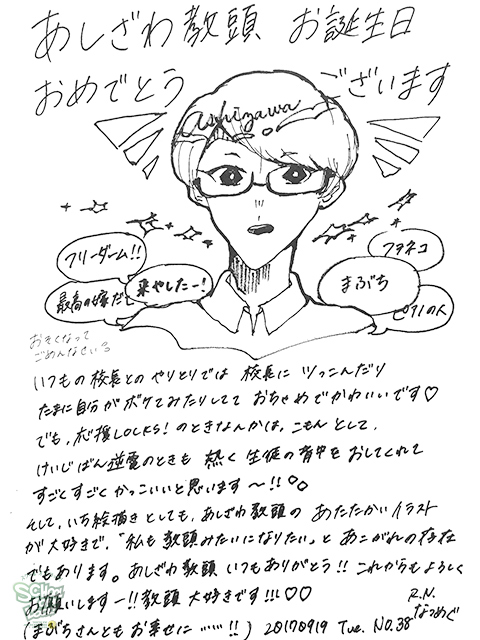 あしざわ教頭 お誕生日
おめでとう ございます
ashizawa
フリーダーム!!
最高の嫁だ
来やしたー!
フタネコ
まぶち
ピアノの人
おそくなって
ごめんなせいろ
いつもの校長とのやりとりでは 校長に ツッこんだり
たまに自分がボケてみたりしてて おちゃめでかわいいです♡
でも、応援LOCKS!のときなんかは、こもんとして、
けいじばん逆電のときも 熱く 生徒の背中を おしてくれて
すごくすごくかっこいいと思います〜!!
そして、いち絵描きとしても、あしざわ教頭の あたたかいイラスト
が大好きで、「私も教頭みたいになりたい」と あこがれの存在
でもあります。あしざわ教頭 いつもありがとう!! これからもよろしく
お願いしますー!!教頭 大好きです!!!♡♡
R.N.
なつめぐ
(まぶちさんともお幸せに……!!) 20170919 Tue. No.38